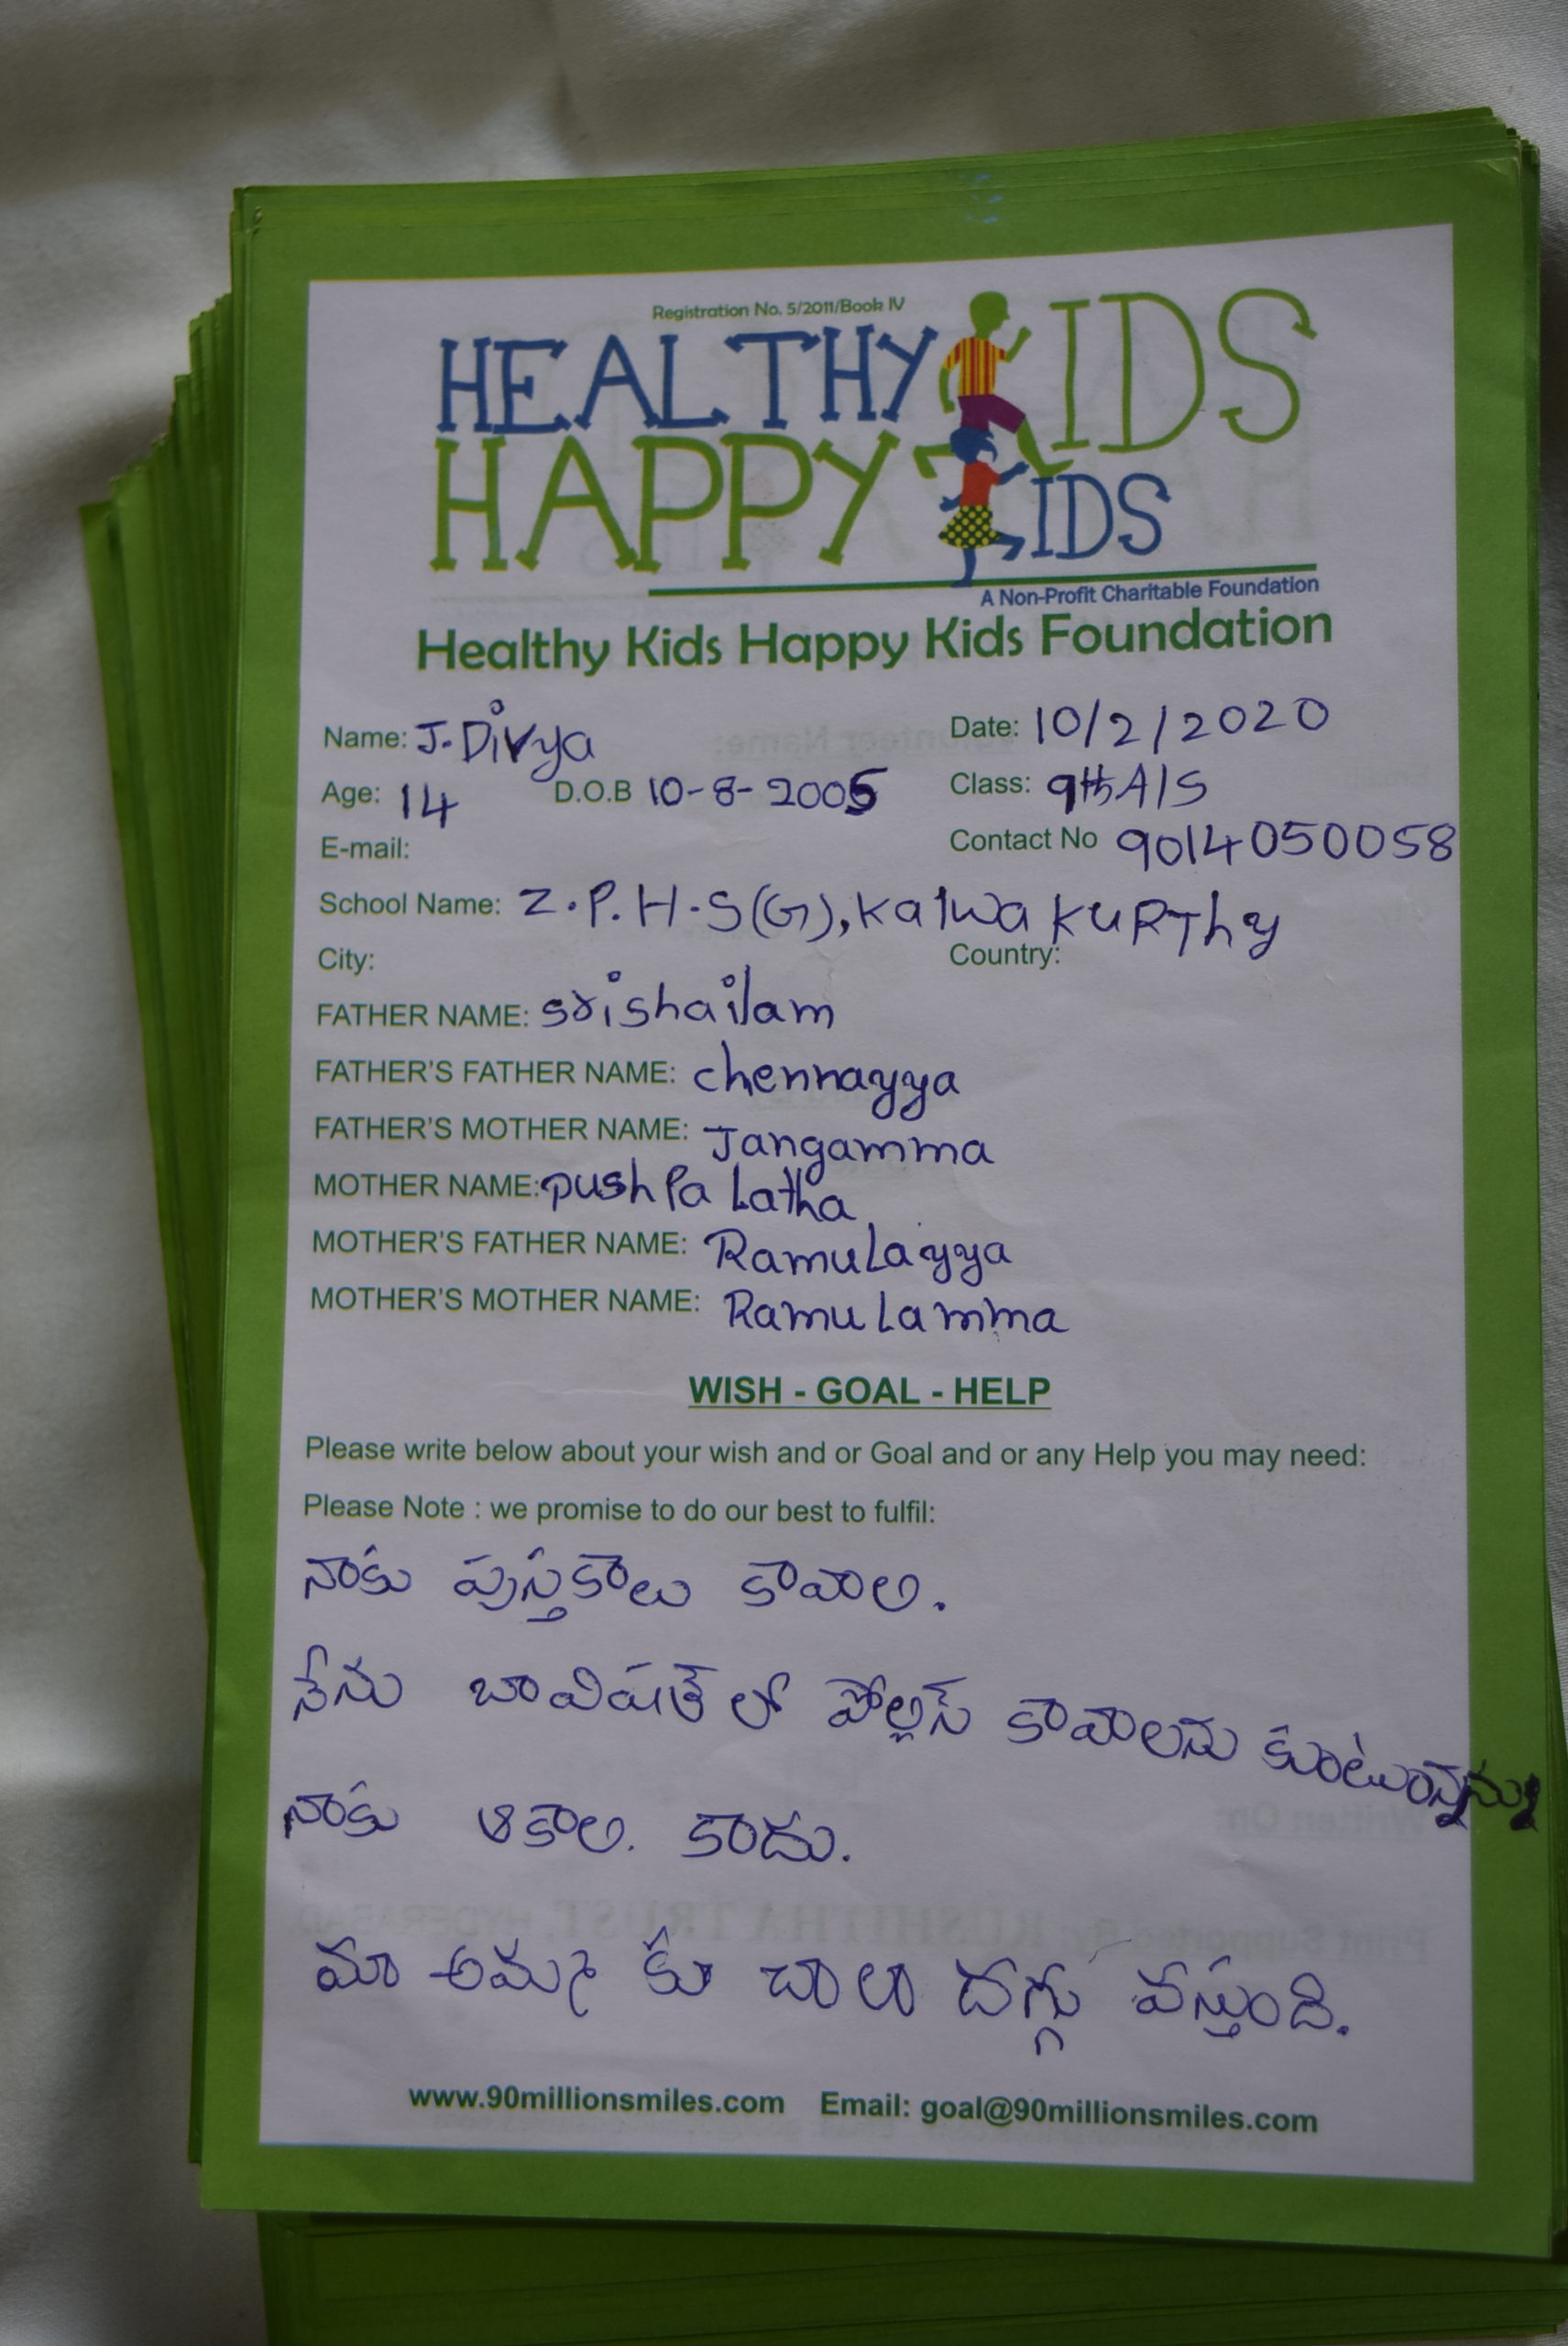 Registration No. 5/2011/Book IV
HEALTHY KIDS
HAPPY KIDS
A Non-Profit Charitable Foundation
Healthy Kids Happy Kids Foundation
Name: J. Divya Date: 10/2/2020
Age: 14 D.O.B 10-8-2005 Class: 9th A/S
E-mail: Contact No 9014050058
School Name: Z.P.H.S(G), Kalwakurthy
City: Country:
FATHER NAME: srishailam
FATHER'S FATHER NAME: chennayya
FATHER'S MOTHER NAME: Jangamma
MOTHER NAME: pushpa Latha
MOTHER'S FATHER NAME: Ramulayya
MOTHER'S MOTHER NAME: Ramulamma
WISH - GOAL - HELP
Please write below about your wish and or Goal and or any Help you may need:
Please Note : we promise to do our best to fulfil:
నాకు పుస్తకాలు కావాలి.
నేను లో కావాలను కుంటున్నాను
నాకు ఆకాలి. కాదు.
మా అమ్మ కు చాలా దగ్గు వస్తుంది.
www.90millionsmiles.com Email: goal@90millionsmiles.com